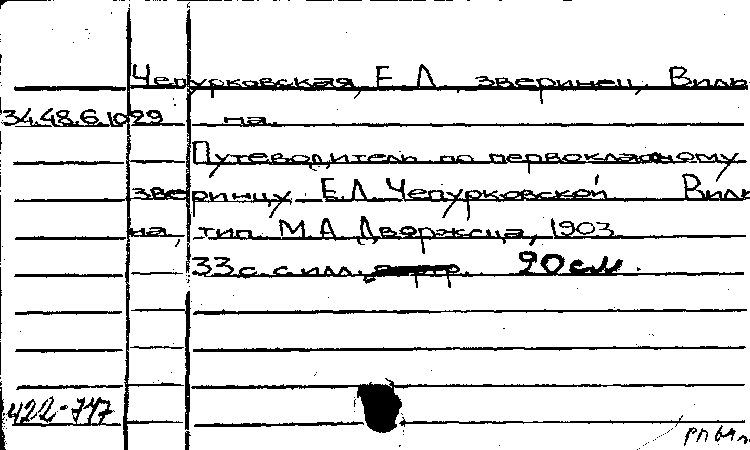 Чепурковская, Е. Л., зверинец, Виль
34.48.6.1029 на.
Путеводитель по первоклассному
зверинцу Е.Л. Чепурковской Виль
на, тип. М.А. Дворжеца, 1903.
33 с. с илл. 20 см.
422-747